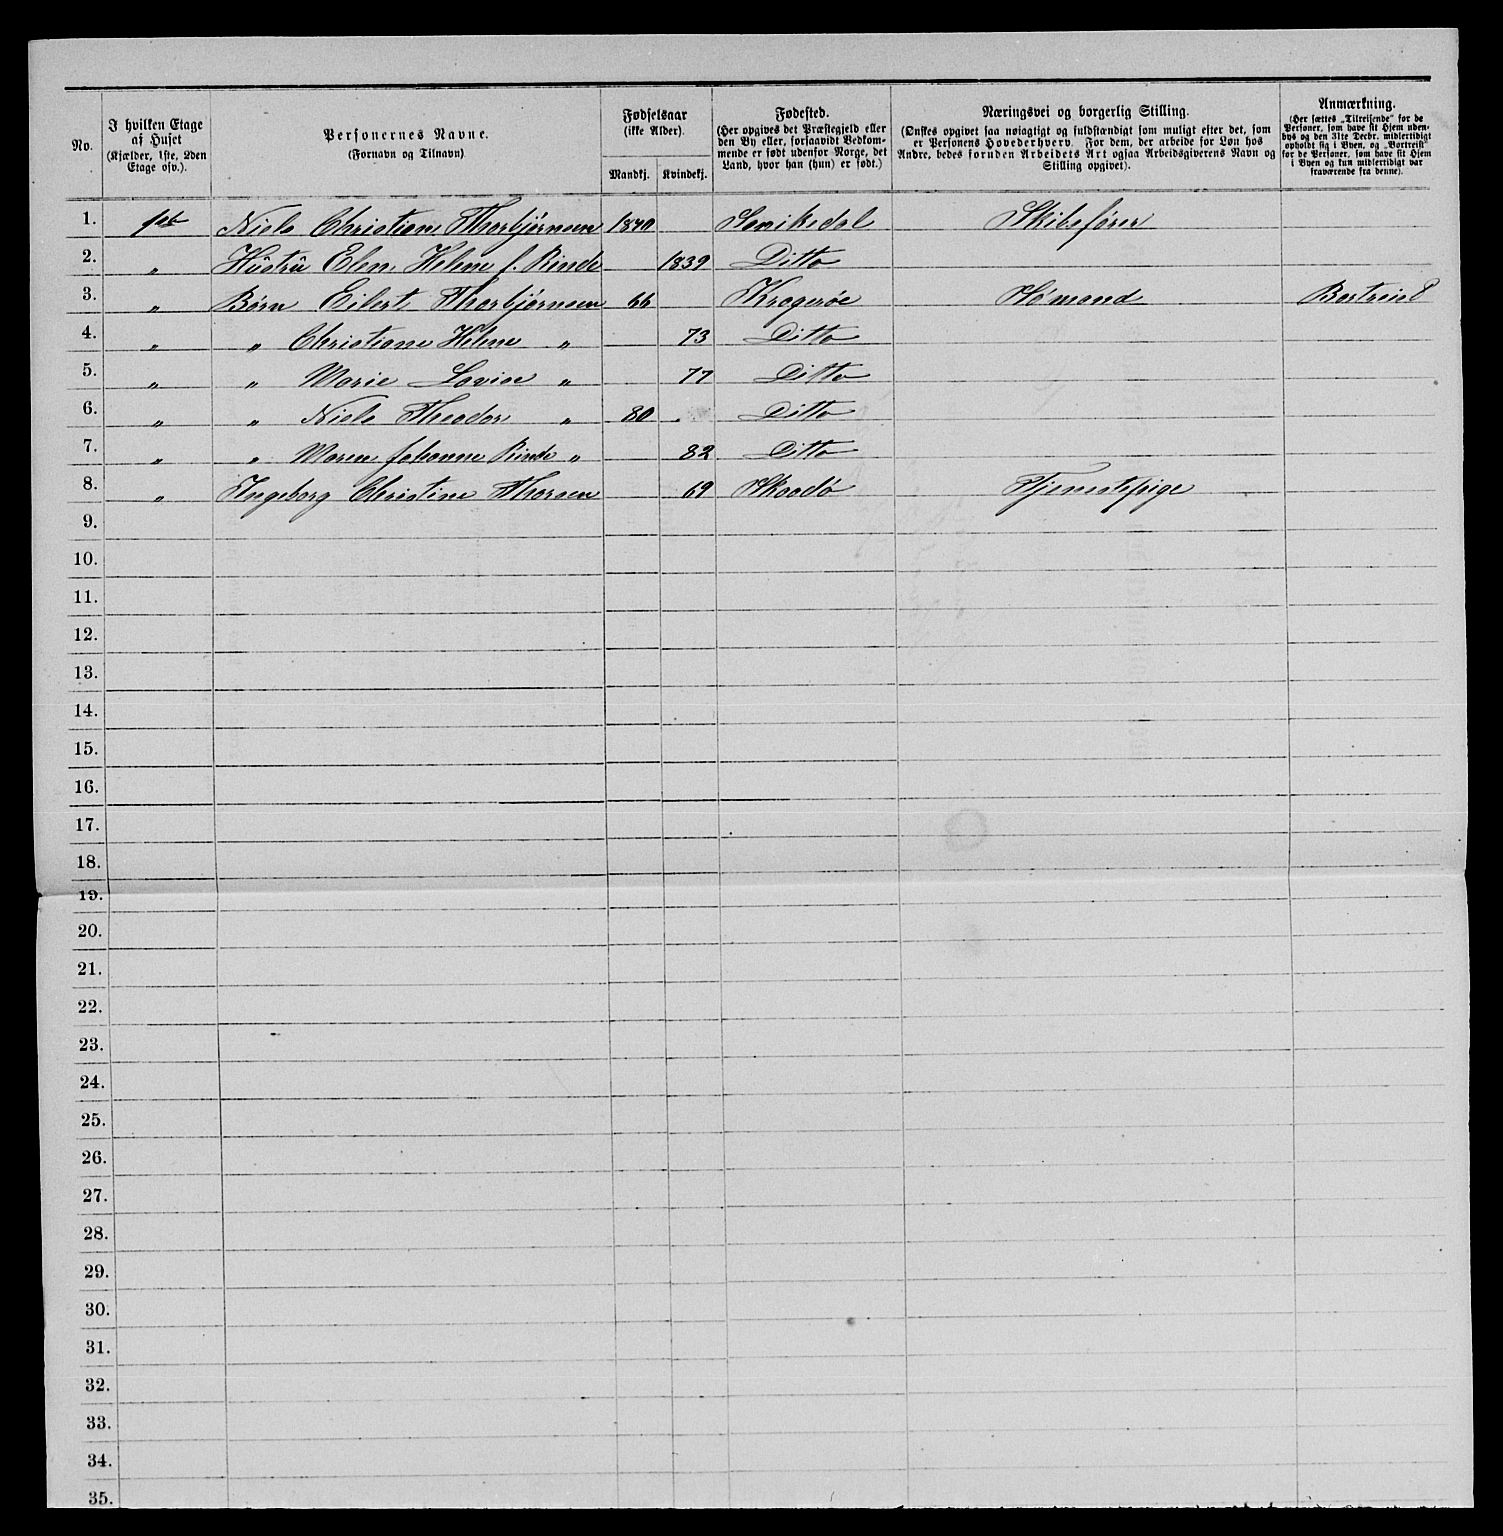 No. | I hvilken Etage af Huset (Kjælder, 1ste, 2den Etage osv.). | Personernes Navne. (Fornavn og Tilnavn) | Fødselsaar (ikke Alder). Mandkj. | Kvindekj. | Fødested. (Her opgives det Præstegjeld eller den By eller, forsaavidt Vedkommende er født udenfor Norge, det Land, hvor han (hun) er født.) | Næringsvei og borgerlig Stilling. (Ønskes opgivet saa nøiagtigt og fuldstændigt som muligt efter det, som er Personens Hovederhverv. For dem, der arbeide for Løn hos Andre, bedes foruden Arbeidets Art ogsaa Arbeidsgiverens Navn og Stilling opgivet). | Anmærkning. (Her sættes „Tilreisende" for de Personer, som have sit Hjem udenbys og den 31te Decbr. midlertidigt opholdt sig i Byen, og „Bortreist" for de Personer, som have sit Hjem i Byen og kun midlertidigt var fraværende fra denne).
1. | 1ste | Niels Christian Thorbjørnsen | 1840 | | Sanikedal | Skibsfører
2. | „ | Hustru Elen Helene f. Rinde | | 1839 | Ditto
3. | „ | Børn Eilert Thorbjørnsen | 66 | | Kragerøe | Sømand | Bortreist
4. | „ | „ Christiane Helene „ | | 73 | Ditto
5. | „ | „ Marie Lovise „ | | 77 | Ditto
6. | „ | „ Niels Theodor „ | 80 | | Ditto
7. | „ | „ Maren Johanne Rinde „ | | 82 | Ditto
8. | „ | Ingeborg Christine Thorsen | | 69 | Skaadø | Tjenestepige
9.
10.
11.
12.
13.
14.
15.
16.
17.
18.
19.
20.
21.
22.
23.
24.
25.
26.
27.
28.
29.
30.
31.
32.
33.
34.
35.